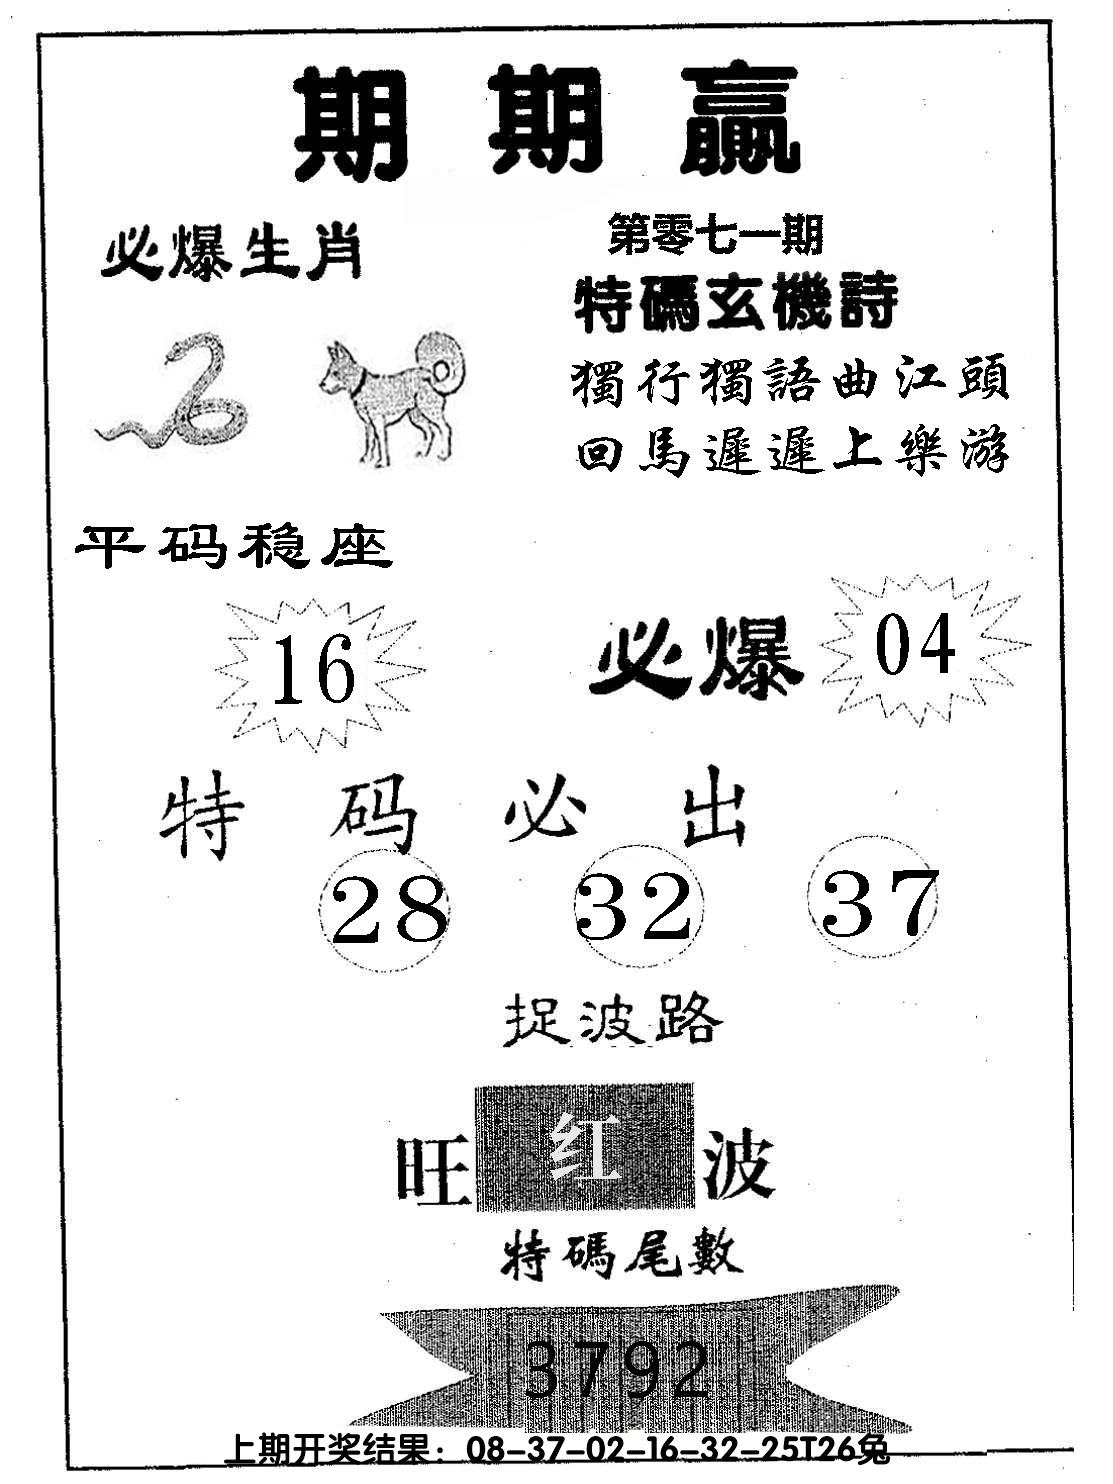 期期贏
必爆生肖
第零七一期
特碼玄機詩
獨行獨語曲江頭
回馬遲遲上樂游
平码稳座
16
必爆 04
特码必出
28 32 37
捉波路
旺红波
特碼尾數
3792
上期开奖结果：08-37-02-16-32-25T26兔